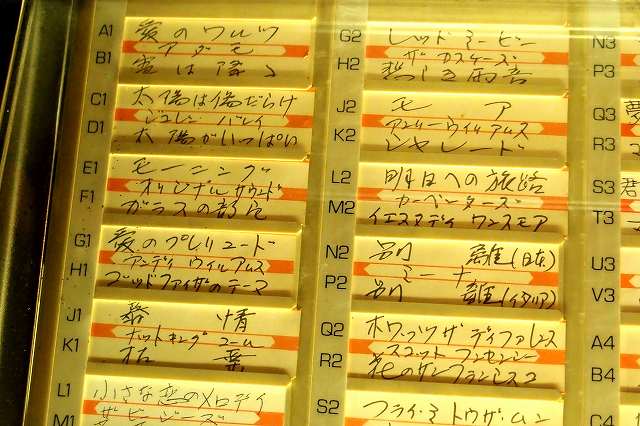 A1
愛のワルツ
アダモ
B1
雪は降る
C1
太陽は傷だらけ
ジュレン バレイ
D1
太陽がいっぱい
E1
モーニング
オリジナル サウンド
F1
ガラスの部屋
G1
愛のプレリュード
アンディ ウイルアムス
H1
ゴッドファザのテーマ
J1
慕情
ナットキングコール
K1
枯葉
L1
小さな恋のメロディ
ザ ビージーズ
M1
G2
レッドミービン
ザ カスケーズ
H2
悲しき雨音
J2
モア
アンリーウイルアムス
K2
シャレード
L2
明日への旅路
カーペンターズ
M2
イエスタデイ ワンスモア
N2
別離(日本)
ミーナ
P2
別離(イタリア)
Q2
ホワッツザディファレンス
スコット
R2
花のサンフランシスコ
S2
フライミトウザムン
N3
P3
Q3
夢
R3
S3
君
T3
U3
V3
A4
B4
C4